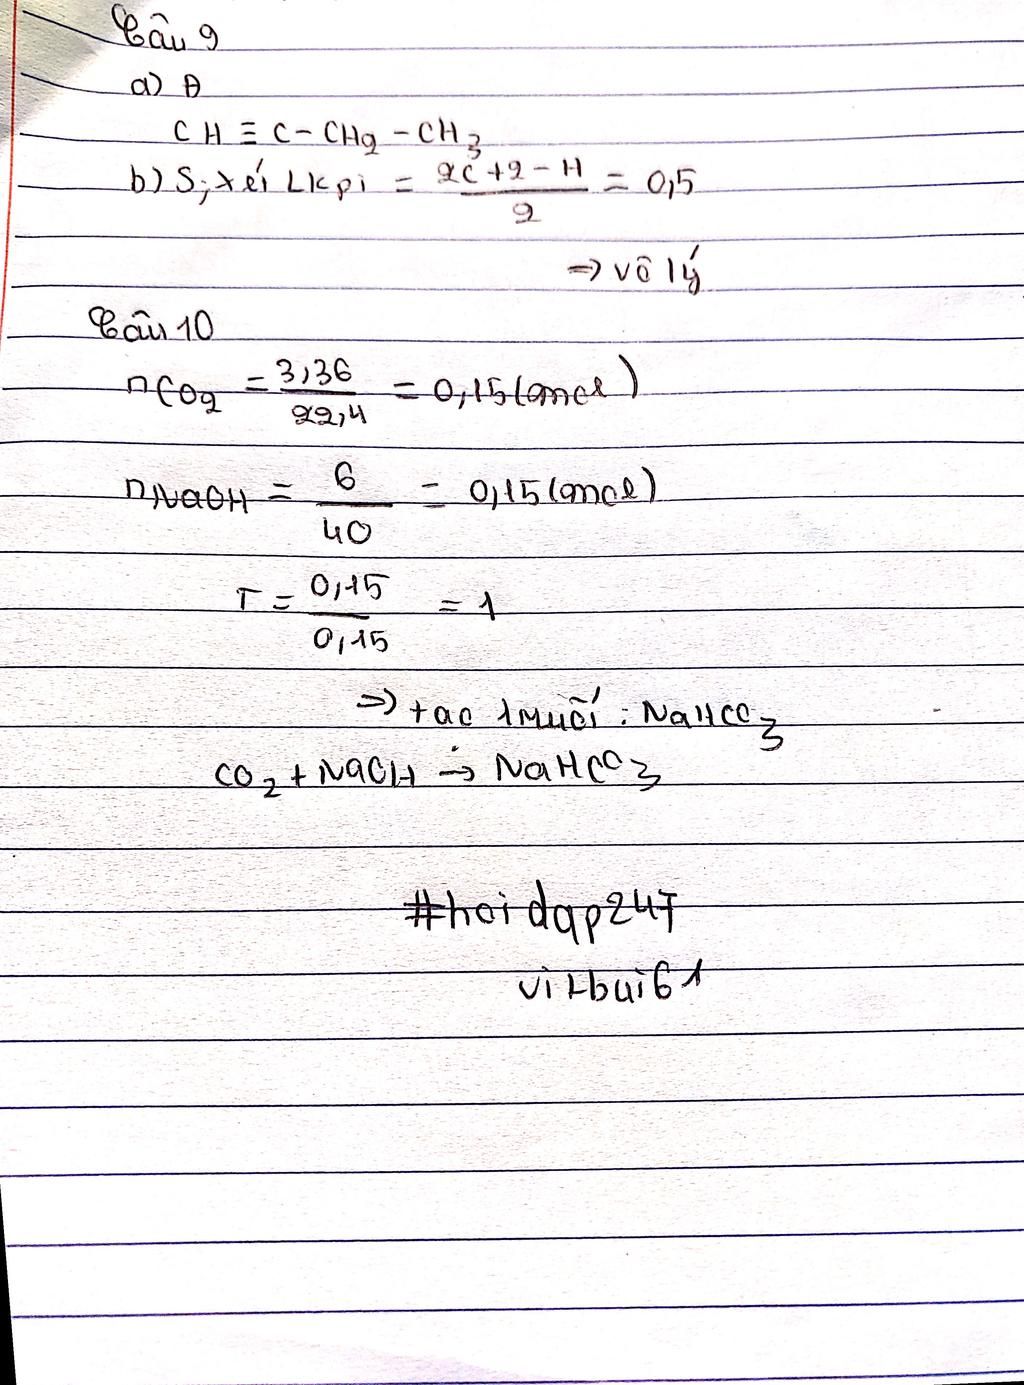 Câu 9
a) Đ
CH ≡ C - CH2 - CH3
b) S; xét Lk pi = (2C + 2 - H) / 2 = 0,5
=> vô lý
Câu 10
nCO2 = 3,36 / 22,4 = 0,15 (mol)
nNaOH = 6 / 40 = 0,15 (mol)
T = 0,15 / 0,15 = 1
=> tạo 1 muối : NaHCO3
CO2 + NaOH -> NaHCO3
#hoidap247
vietbui61